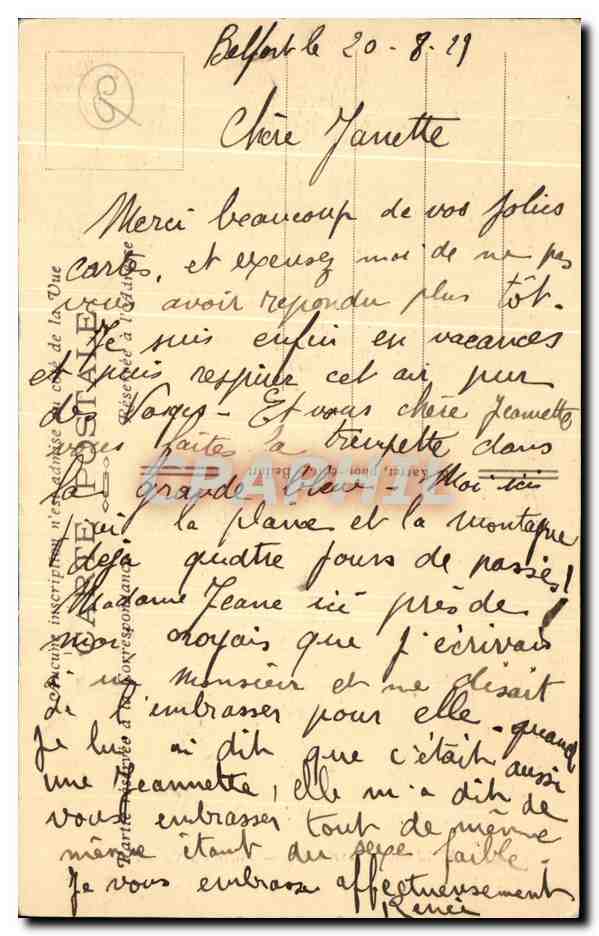 Belfort le 20-8-29
Chère Janette
Merci beaucoup de vos jolies
cartes, et excusez moi de ne pas
vous avoir repondu plus tôt.
Je suis enfin en vacances
et puis respirer cet air pur
des Vosges - Et vous chère Jeannette
vous faites la trempette dans
la grande bleue - Moi ici
j'ai la plaine et la montagne
déjà quatre jours de passés!
Madame Jeane ici près de
moi croyais que j'écrivais
à un Monsieur et me disait
de l'embrasser pour elle - quand
Je lui ai dit que c'était aussi
une Jeannette, elle m'a dit de
vous embrasser tout de même
même étant du sexe faible -
Je vous embrasse affectueusement
Renée
CARTE POSTALE
Aucune inscription n'est admise du côté de la Vue
Partie réservée à la Correspondance
Réservée à l'Adresse
CPAPHIL